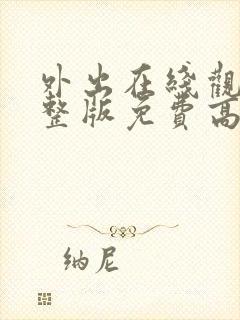 外出在綫觀
整版免費高
纳尼